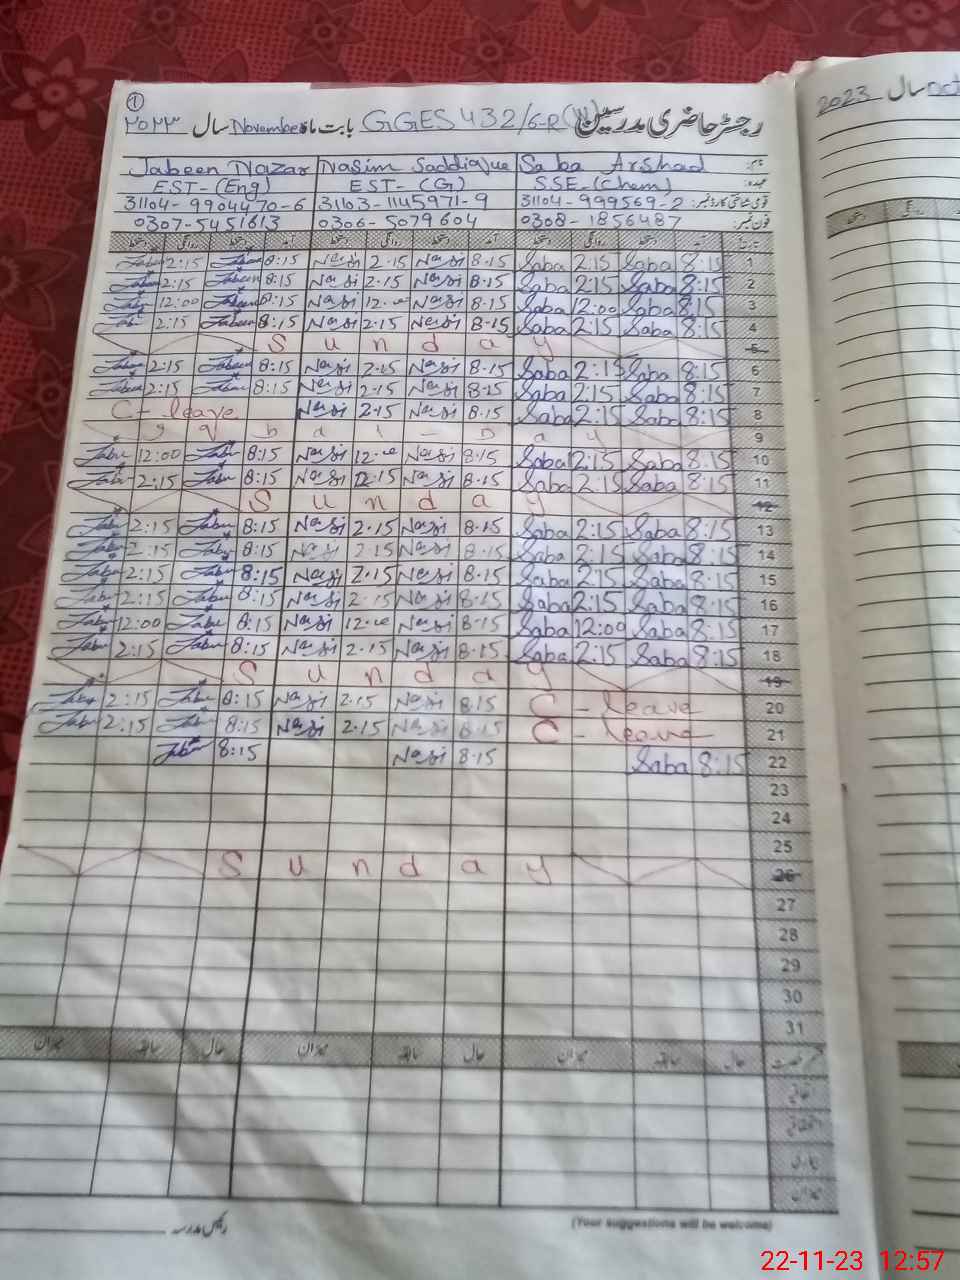 ①
رجسٹر حاضری مدرسین GGES 432/6-R(W) بابت ماہ November سال ۲۰۲۳
2023 سال Oct
نام: Saba Arshad Nasim Saddique Jabeen Nazar
عہدہ: SSE-(Chem) EST-(G) EST-(Eng)
قومی شناختی کارڈ نمبر: 31104-999569-2 31103-1145971-9 31104-9904470-6
فون نمبر: 0308-1856487 0306-5079604 0307-5451613
تاریخ آمد دستخط روانگی دستخط آمد دستخط روانگی دستخط آمد دستخط روانگی دستخط
1 8:15 Saba 2:15 Saba 8.15 Nasi 2.15 Nasi 8:15 Jabeen 2:15 Jabeen
2 8:15 Saba 2:15 Saba 8.15 Nasi 2.15 Nasi 8:15 Jabeen 2:15 Jabeen
3 8:15 Saba 12:00 Saba 8.15 Nasi 12.00 Nasi 8:15 Jabeen 12:00 Jabeen
4 8:15 Saba 2:15 Saba 8.15 Nasi 2.15 Nasi 8:15 Jabeen 2:15 Jabe
5 Sunday
6 8:15 Saba 2:15 Saba 8.15 Nasi 2.15 Nasi 8:15 Jabeen 2:15 Jabeen
7 8:15 Saba 2:15 Saba 8.15 Nasi 2.15 Nasi 8:15 Jabeen 2:15 Jabeen
8 8:15 Saba 2:15 Saba 8.15 Nasi 2.15 Nasi C-leave
9 Iqbal-Day
10 8:15 Saba 2:15 Saba 8.15 Nasi 12.00 Nasi 8:15 Jabe 12:00 Jabe
11 8:15 Saba 2:15 Saba 8.15 Nasi 2.15 Nasi 8:15 Jabe 2:15 Jabe
12 Sunday
13 8:15 Saba 2:15 Saba 8.15 Nasi 2.15 Nasi 8:15 Jabe 2:15 Jabe
14 8:15 Saba 2:15 Saba 8.15 Nasi 2.15 Nasi 8:15 Jabe 2:15 Jabe
15 8:15 Saba 2:15 Saba 8.15 Nasi 2.15 Nasi 8:15 Jabe 2:15 Jabe
16 8:15 Saba 2:15 Saba 8.15 Nasi 2.15 Nasi 8:15 Jabe 2:15 Jabe
17 8:15 Saba 12:00 Saba 8.15 Nasi 12.00 Nasi 8:15 Jabe 12:00 Jabe
18 8:15 Saba 2:15 Saba 8.15 Nasi 2.15 Nasi 8:15 Jabe 2:15 Jabe
19 Sunday
20 C-leave 8.15 Nasi 2.15 Nasi 8:15 Jabe 2:15 Jabe
21 C-leave 8.15 Nasi 2.15 Nasi 8:15 Jabe 2:15 Jabe
22 8:15 Saba 8.15 Nasi 8:15 Jabe
23
24
25
26 Sunday
27
28
29
30
31
حال سابقہ میزان حال سابقہ میزان حال سابقہ میزان
اتفاقی
استحقاقی
بیماری
میزان
رئیس مدرسہ
(Your suggestions will be welcome)
22-11-23 12:57